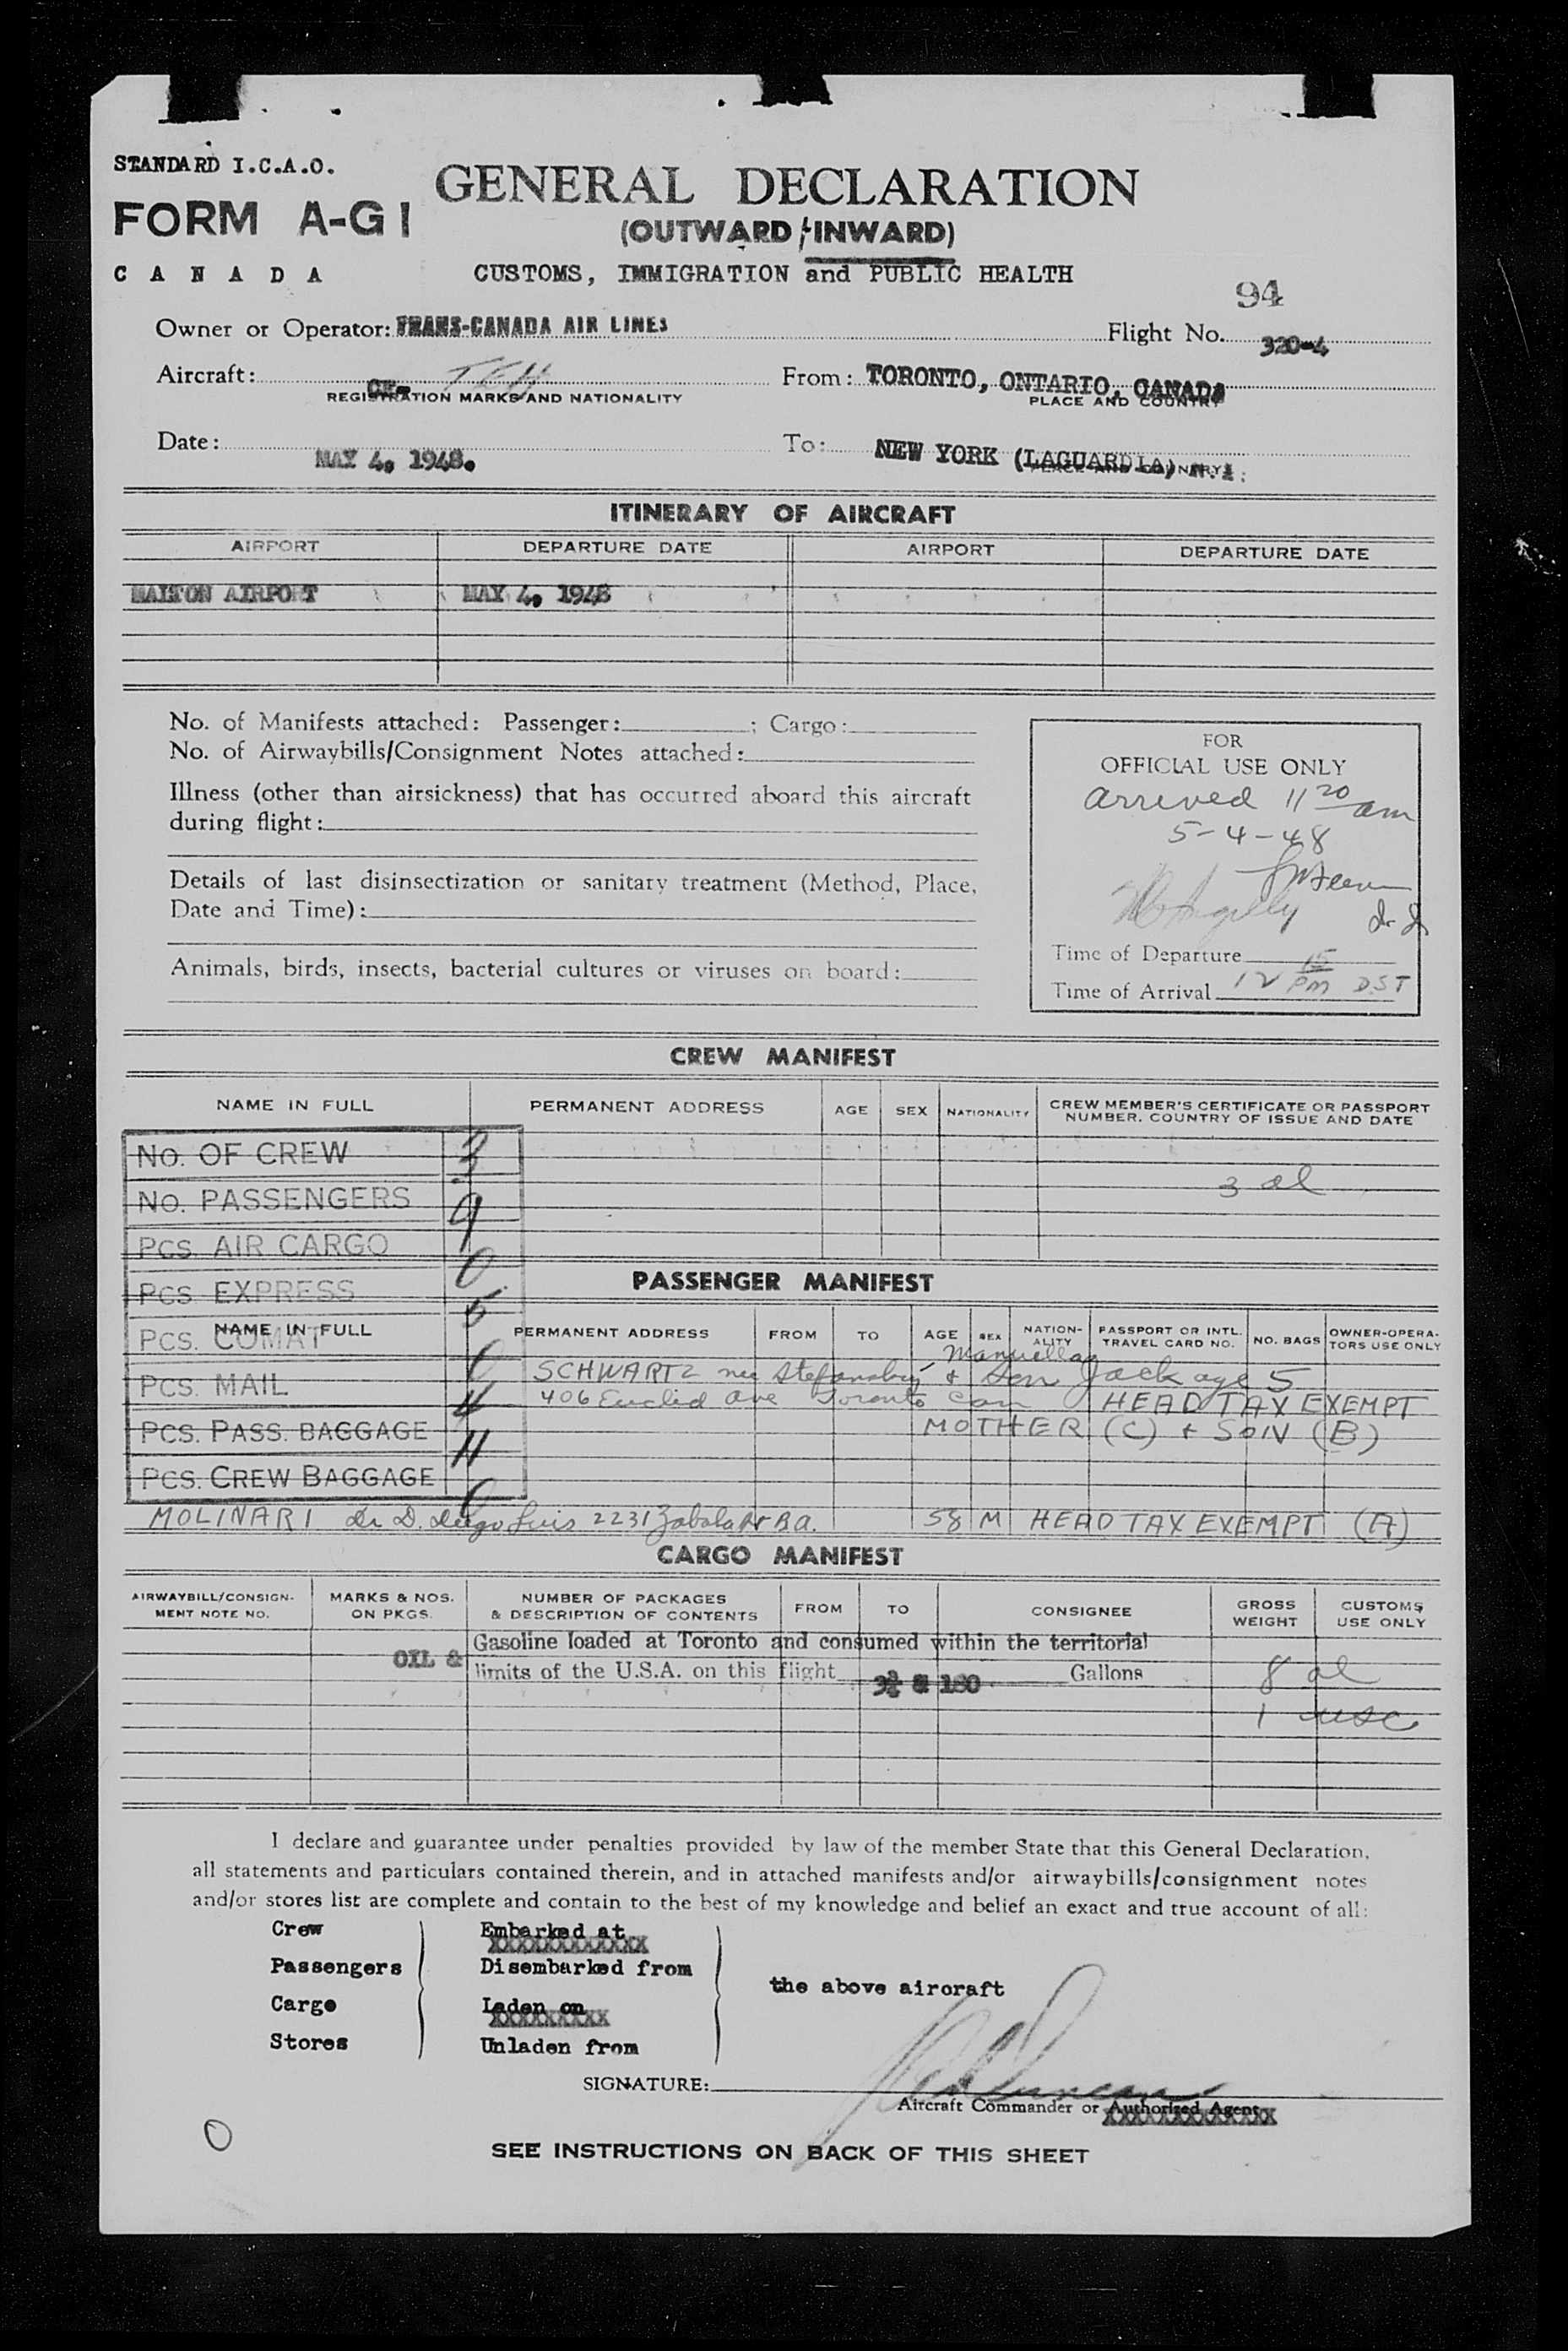 STANDARD I.C.A.O.
FORM A-G1
CANADA
GENERAL DECLARATION
(OUTWARD/INWARD)
CUSTOMS, IMMIGRATION and PUBLIC HEALTH
94
Owner or Operator: TRANS-CANADA AIR LINES
Flight No. 320-4
Aircraft: CF-
REGISTRATION MARKS AND NATIONALITY
From: TORONTO, ONTARIO, CANADA
PLACE AND COUNTRY
Date: MAY 4, 1948.
To: NEW YORK (LAGUARDIA) N.Y.
ITINERARY OF AIRCRAFT
AIRPORT DEPARTURE DATE AIRPORT DEPARTURE DATE
MALTON AIRPORT MAY 4, 1948
No. of Manifests attached: Passenger: ; Cargo:
No. of Airwaybills/Consignment Notes attached:
Illness (other than airsickness) that has occurred aboard this aircraft
during flight:
Details of last disinsectization or sanitary treatment (Method, Place,
Date and Time):
Animals, birds, insects, bacterial cultures or viruses on board:
FOR
OFFICIAL USE ONLY
arrived 11 20 am
5-4-48
Time of Departure
Time of Arrival 12 15 PM DST
CREW MANIFEST
NAME IN FULL PERMANENT ADDRESS AGE SEX NATIONALITY CREW MEMBER'S CERTIFICATE OR PASSPORT
NUMBER, COUNTRY OF ISSUE AND DATE
3 al
No. OF CREW 3
No. PASSENGERS 9
Pcs. AIR CARGO 0
Pcs. EXPRESS 5
Pcs. COMAT 0
Pcs. MAIL 4
Pcs. PASS. BAGGAGE 11
Pcs. CREW BAGGAGE 0
PASSENGER MANIFEST
NAME IN FULL PERMANENT ADDRESS FROM TO AGE SEX NATION-
ALITY PASSPORT OR INTL.
TRAVEL CARD NO. NO. BAGS OWNER-OPERA-
TORS USE ONLY
Manuella
SCHWARTZ nee & son Jack age 5
406 Euclid Ave Toronto Can HEAD TAX EXEMPT
MOTHER (C) + SON (B)
MOLINARI dr D. diego Luis 2231 Zabala Ar BA. 58 M HEAD TAX EXEMPT (A)
CARGO MANIFEST
AIRWAYBILL/CONSIGN-
MENT NOTE NO. MARKS & NOS.
ON PKGS. NUMBER OF PACKAGES
& DESCRIPTION OF CONTENTS FROM TO CONSIGNEE GROSS
WEIGHT CUSTOMS
USE ONLY
Gasoline loaded at Toronto and consumed within the territorial
OIL & limits of the U.S.A. on this flight 180 Gallons
8 al
1 usc
I declare and guarantee under penalties provided by law of the member State that this General Declaration,
all statements and particulars contained therein, and in attached manifests and/or airwaybills/consignment notes
and/or stores list are complete and contain to the best of my knowledge and belief an exact and true account of all:
Crew Embarked at
Passengers Disembarked from
the above aircraft
Cargo Laden on
Stores Unladen from
SIGNATURE:
Aircraft Commander or Authorized Agent
SEE INSTRUCTIONS ON BACK OF THIS SHEET